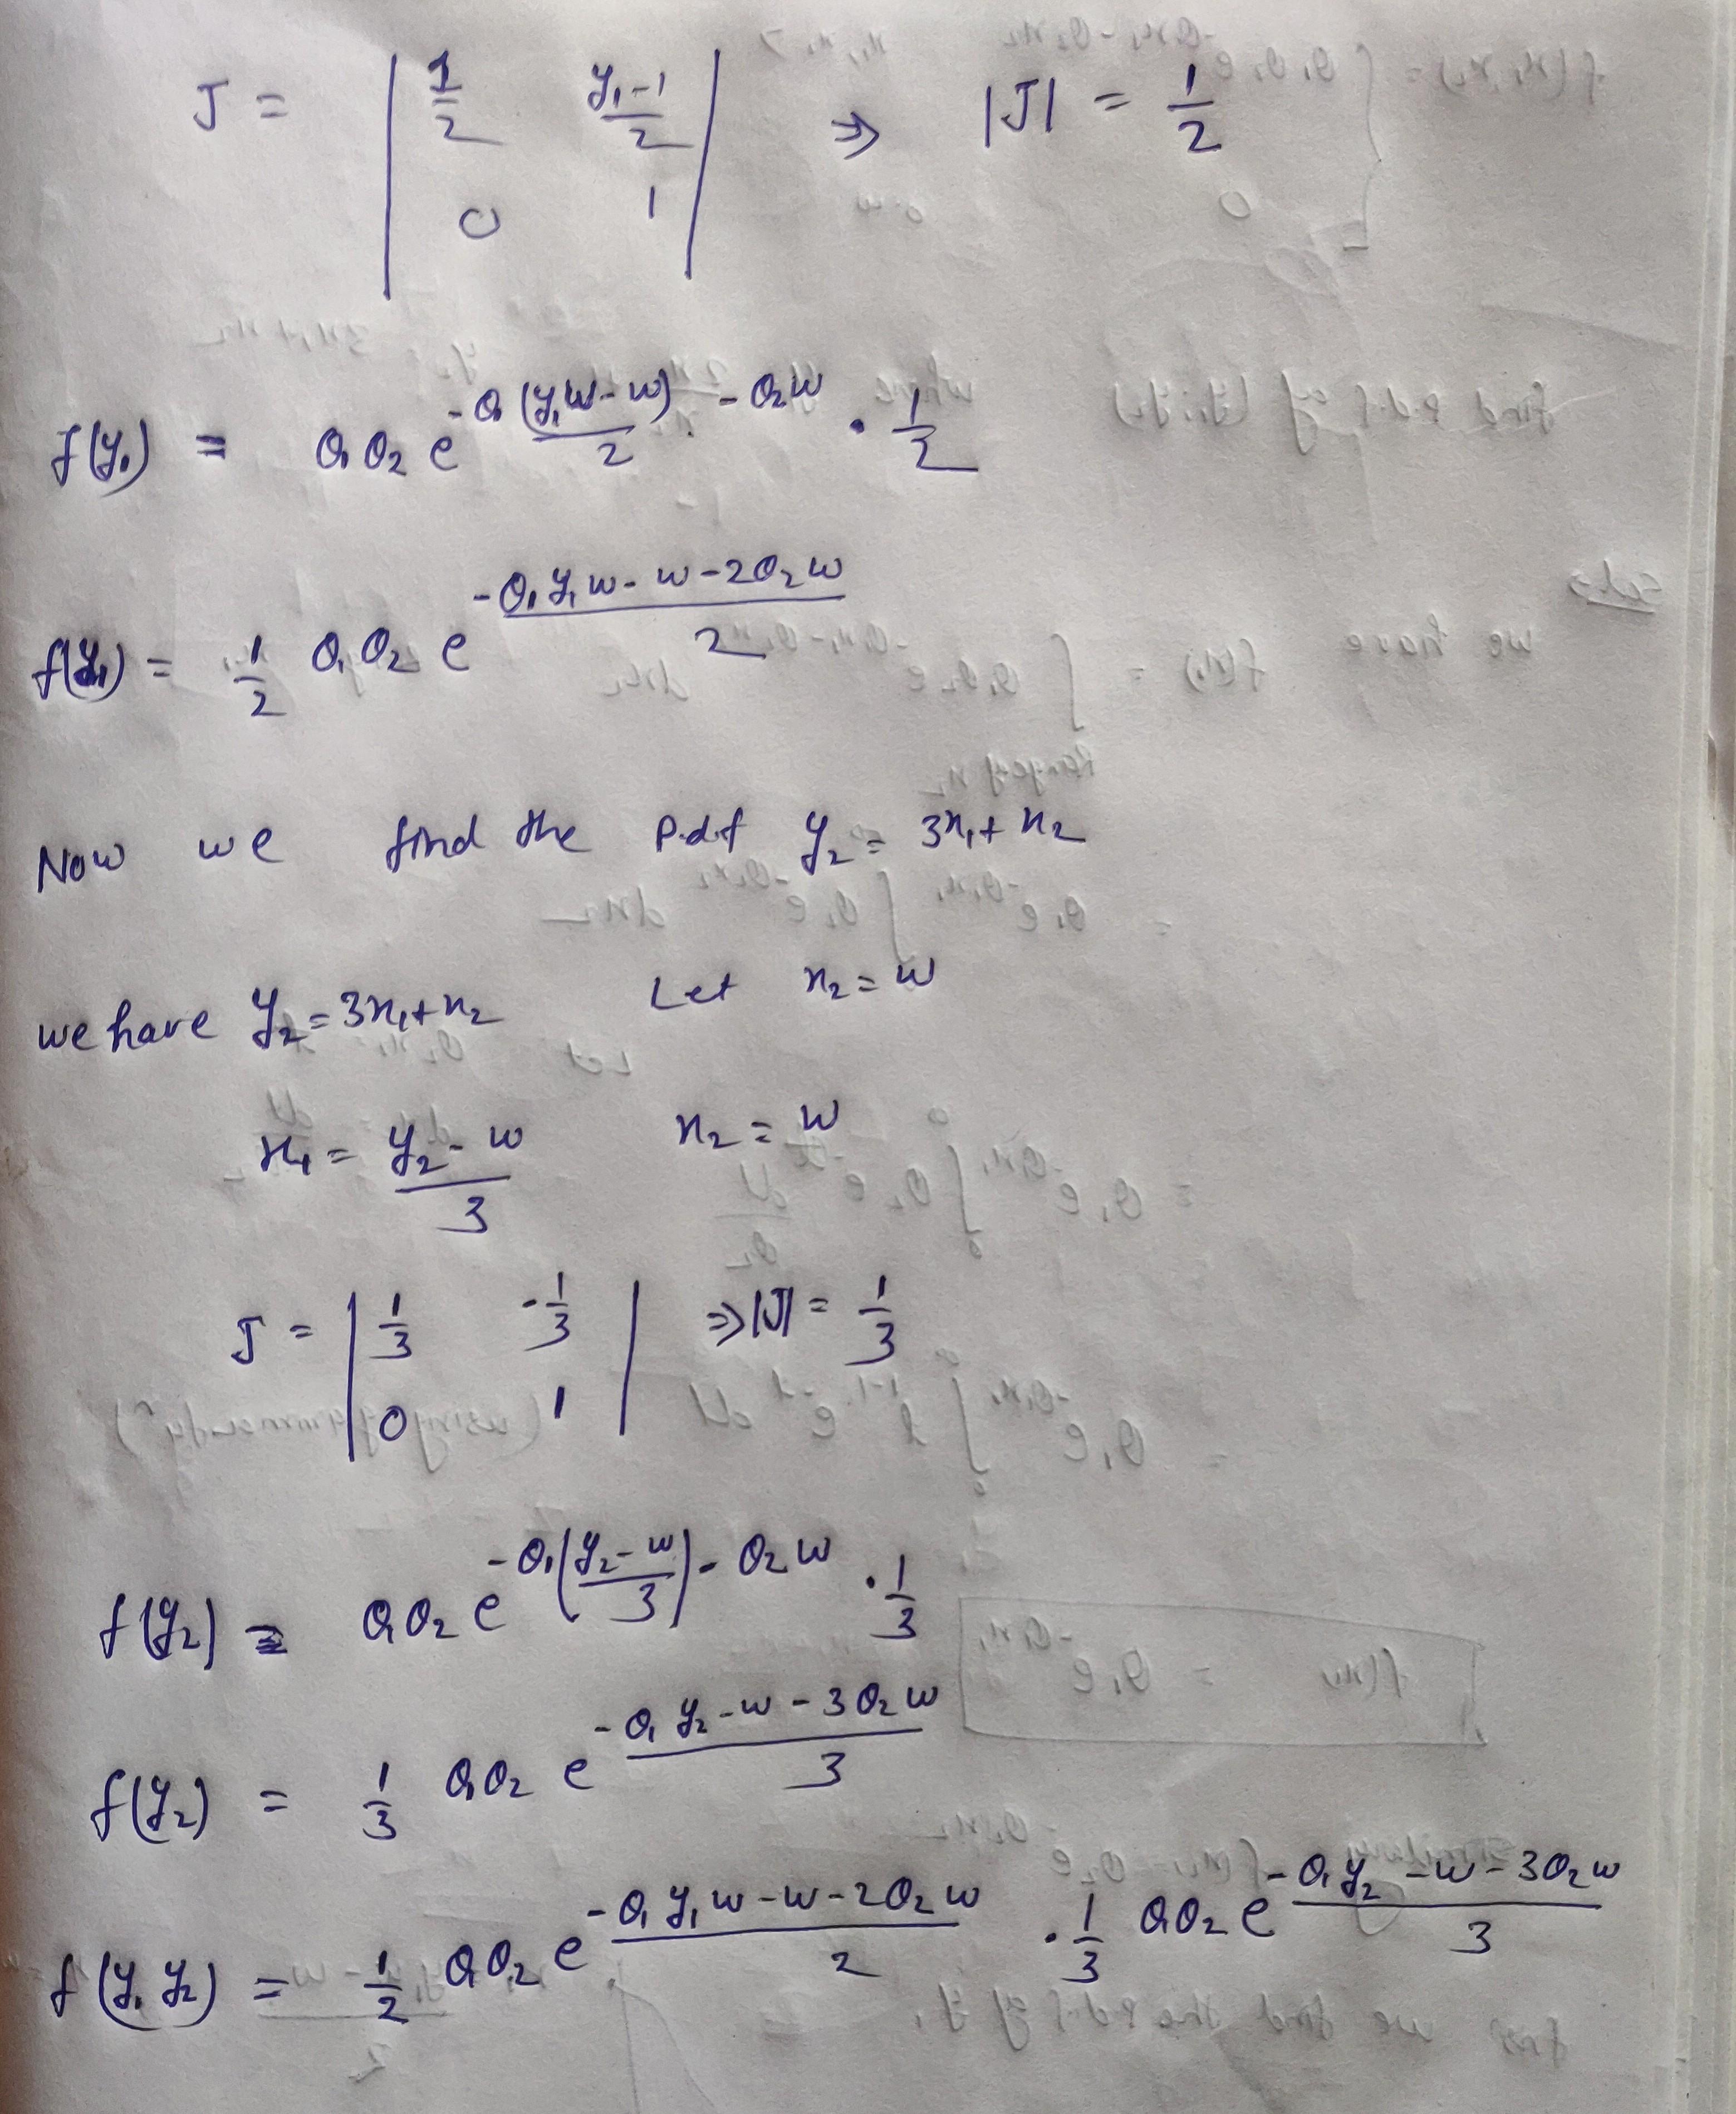 J = | 1/2 (y₁-1)/2 | ⇒ |J| = 1/2
| 0 1 |
f(y₁) = θ₁ θ₂ e^(-θ₁ (y₁w-w)/2 - θ₂w) . 1/2
f(y₁) = 1/2 θ₁ θ₂ e^(-(θ₁ y₁ w - w - 2θ₂ w)/2)
Now we find the p.d.f y₂ = 3x₁ + x₂
we have y₂ = 3x₁ + x₂ Let x₂ = w
x₁ = (y₂ - w)/3 x₂ = w
J = | 1/3 -1/3 | ⇒ |J| = 1/3
| 0 1 |
f(y₂) = θ₁ θ₂ e^(-θ₁((y₂ - w)/3) - θ₂ w) . 1/3
f(y₂) = 1/3 θ₁ θ₂ e^(-(θ₁ y₂ - w - 3θ₂ w)/3)
f(y₁ y₂) = 1/2 θ₁ θ₂ e^(-(θ₁ y₁ w - w - 2θ₂ w)/2) . 1/3 θ₁ θ₂ e^(-(θ₁ y₂ - w - 3θ₂ w)/3)